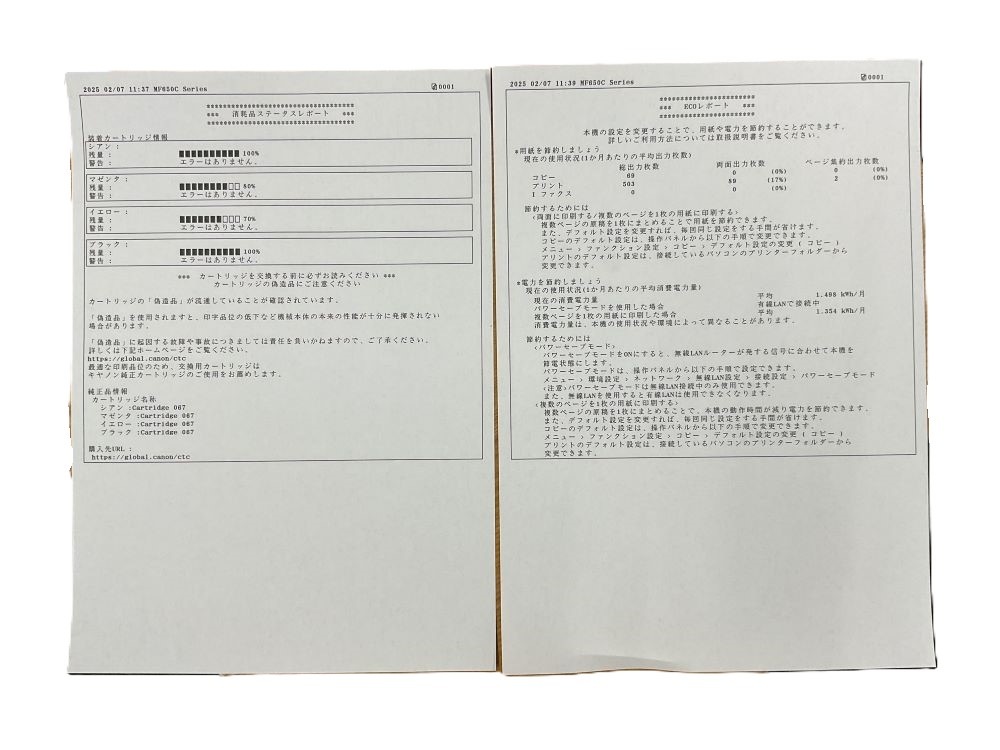 2025 02/07 11:37 MF650C Series 0001
********************************
*** 消耗品ステータスレポート ***
********************************
装着カートリッジ情報
シアン :
残量 : 100%
警告 : エラーはありません。
マゼンタ :
残量 : 80%
警告 : エラーはありません。
イエロー :
残量 : 70%
警告 : エラーはありません。
ブラック :
残量 : 100%
警告 : エラーはありません。
*** カートリッジを交換する前に必ずお読みください ***
カートリッジの偽造品にご注意ください
カートリッジの「偽造品」が流通していることが確認されています。
「偽造品」を使用されますと、印字品位の低下など機械本体の本来の性能が十分に発揮されない
場合があります。
「偽造品」に起因する故障や事故につきましては責任を負いかねますので、ご了承ください。
詳しくは下記ホームページをご覧ください。
https://global.canon/ctc
最適な印刷品位のため、交換用カートリッジは
キヤノン純正カートリッジのご使用をお薦めします。
純正品情報
カートリッジ名称
シアン :Cartridge 067
マゼンタ :Cartridge 067
イエロー :Cartridge 067
ブラック :Cartridge 067
購入先URL :
https://global.canon/ctc
2025 02/07 11:39 MF650C Series 0001
*********************
*** ECOレポート ***
*********************
本機の設定を変更することで、用紙や電力を節約することができます。
詳しいご利用方法については取扱説明書をご覧ください。
*用紙を節約しましょう
現在の使用状況(1か月あたりの平均出力枚数)
総出力枚数 両面出力枚数 ページ集約出力枚数
コピー 69 0 (0%) 0 (0%)
プリント 503 89 (17%) 2 (0%)
I ファクス 0 0 (0%)
節約するためには
<両面に印刷する/複数のページを1枚の用紙に印刷する>
複数ページの原稿を1枚にまとめることで用紙を節約できます。
また、デフォルト設定を変更すれば、毎回同じ設定をする手間が省けます。
コピーのデフォルト設定は、操作パネルから以下の手順で変更できます。
メニュー > ファンクション設定 > コピー > デフォルト設定の変更 ( コピー )
プリントのデフォルト設定は、接続しているパソコンのプリンターフォルダーから
変更できます。
*電力を節約しましょう
現在の使用状況(1か月あたりの平均消費電力量)
現在の消費電力量 平均 1.498 kWh/月
パワーセーブモードを使用した場合 有線LANで接続中
複数ページを1枚の用紙に印刷した場合 平均 1.354 kWh/月
消費電力量は、本機の使用状況や環境によって異なることがあります。
節約するためには
<パワーセーブモード>
パワーセーブモードをONにすると、無線LANルーターが発する信号に合わせて本機を
節電状態にします。
パワーセーブモードは、操作パネルから以下の手順で設定できます。
メニュー > 環境設定 > ネットワーク > 無線LAN設定 > 接続設定 > パワーセーブモード
<注意>パワーセーブモードは無線LAN接続中のみ使用できます。
また、無線LANを使用すると有線LANは使用できなくなります。
<複数のページを1枚の用紙に印刷する>
複数ページの原稿を1枚にまとめることで、本機の動作時間が減り電力を節約できます。
また、デフォルト設定を変更すれば、毎回同じ設定をする手間が省けます。
コピーのデフォルト設定は、操作パネルから以下の手順で変更できます。
メニュー > ファンクション設定 > コピー > デフォルト設定の変更 ( コピー )
プリントのデフォルト設定は、接続しているパソコンのプリンターフォルダーから
変更できます。